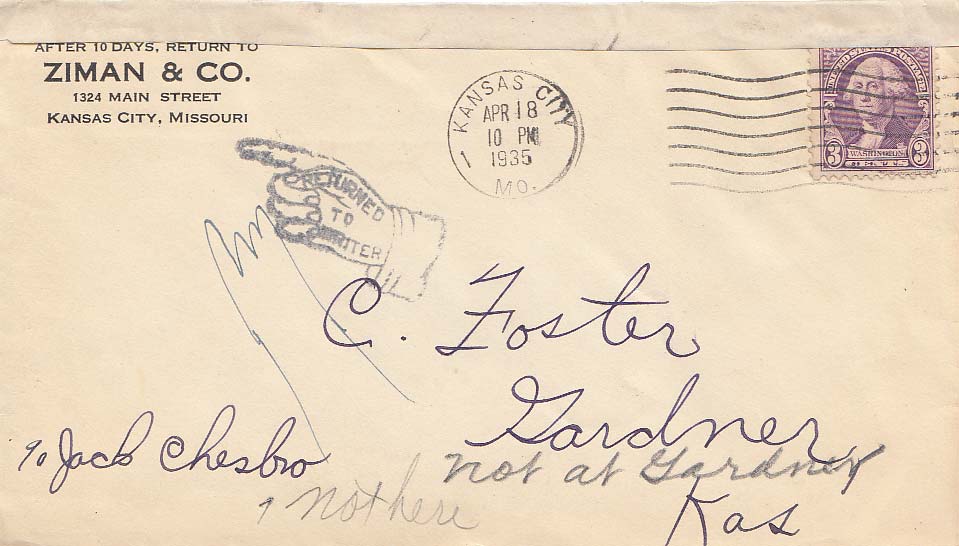 AFTER 10 DAYS, RETURN TO
ZIMAN & CO.
1324 MAIN STREET
KANSAS CITY, MISSOURI
KANSAS CITY
APR 18
10 PM
1935
MO.
UNITED STATES POSTAGE
3 WASHINGTON 3
RETURNED
TO
WRITER
C. Foster
Gardner
Kas
℅ Jack Chesbro
not at Gardner
not here